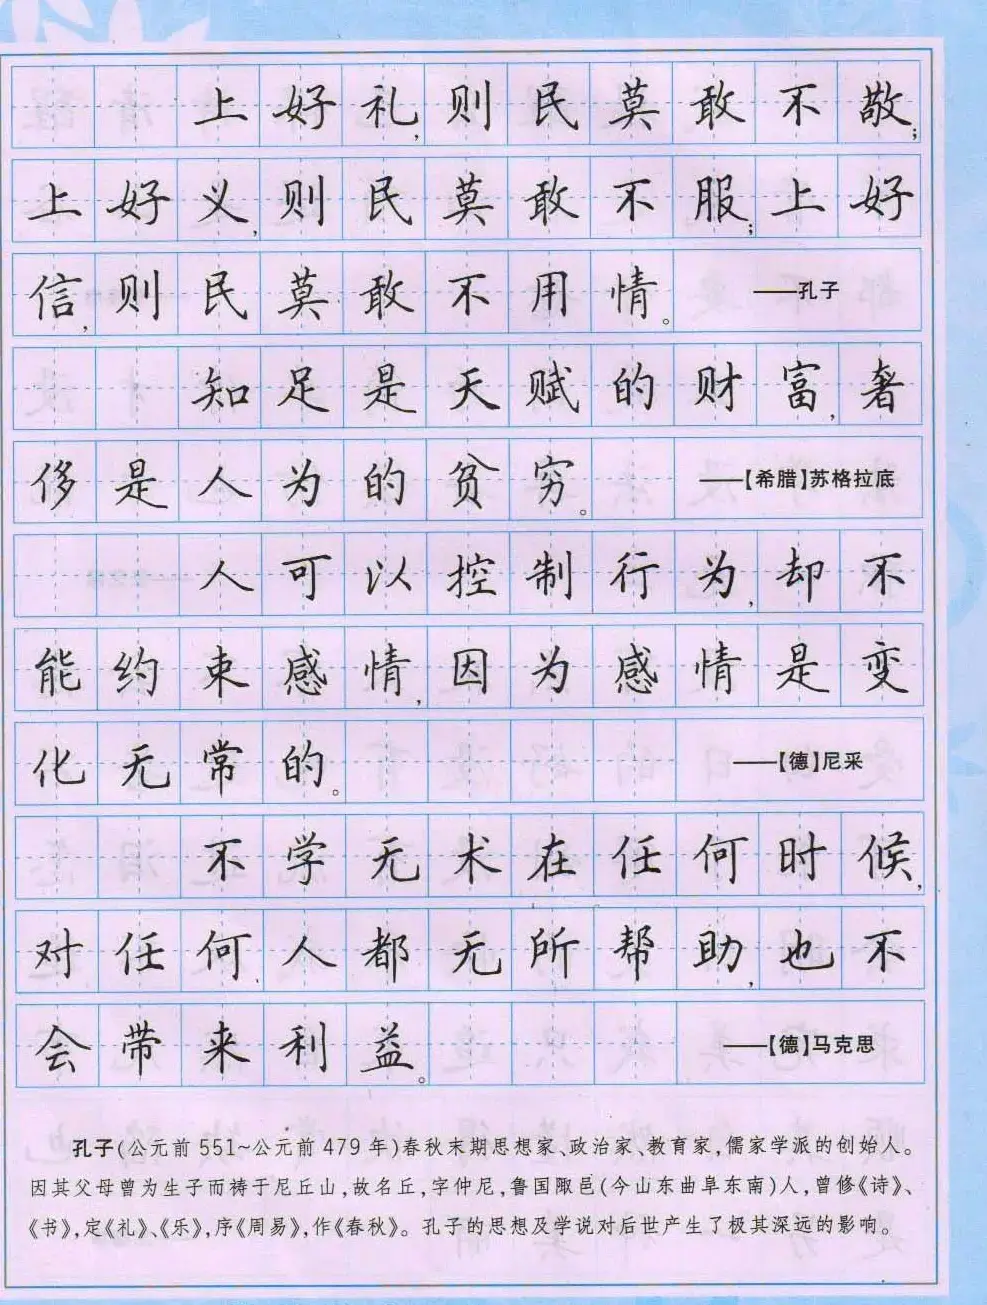 上好礼,则民莫敢不敬;
上好义,则民莫敢不服;上好
信,则民莫敢不用情。——孔子
知足是天赋的财富,奢
侈是人为的贫穷。——【希腊】苏格拉底
人可以控制行为,却不
能约束感情,因为感情是变
化无常的。——【德】尼采
不学无术在任何时候,
对任何人都无所帮助,也不
会带来利益。——【德】马克思
孔子(公元前 551~公元前 479 年)春秋末期思想家、政治家、教育家,儒家学派的创始人。
因其父母曾为生子而祷于尼丘山,故名丘,字仲尼,鲁国陬邑(今山东曲阜东南)人,曾修《诗》、
《书》,定《礼》、《乐》,序《周易》,作《春秋》。孔子的思想及学说对后世产生了极其深远的影响。